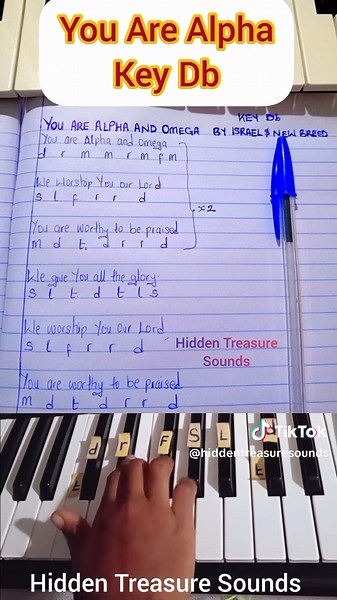 You Are Alpha
Key Db
KEY Db
YOU ARE ALPHA AND OMEGA BY ISRAEL & NEW BREED
You are Alpha and Omega
d r m m r m f m
We worship You our Lord
s l f r r d
x2
You are worthy to be praised
m d t, d r r d
We give You all the glory
s l t d t l s
We worship You Our Lord
s l f r r d
Hidden Treasure
Sounds
You are worthy to be praised
m d t d r r d
d r F S L
TikTok
@hiddentreasuresounds
t
t
Hidden Treasure Sounds